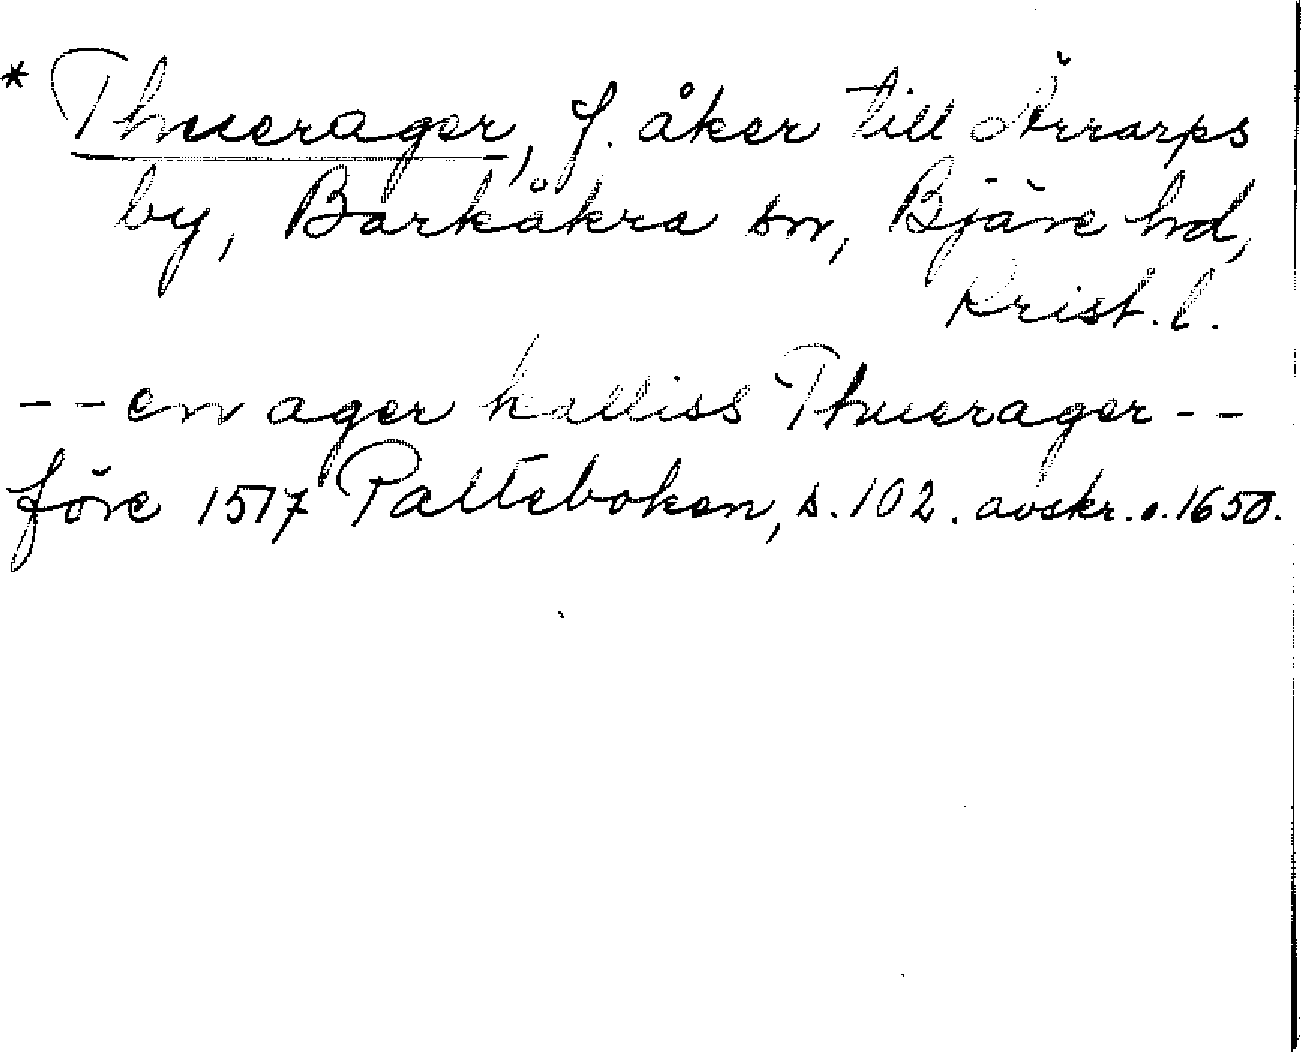 * Thuerager, f. åker till Ärrarps
by, Barkåkra sn, Bjäre hd,
Krist. l.
-- en ager kalliss Thuerager --
före 1517 Palteboken, s. 102. avskr. o. 1650.